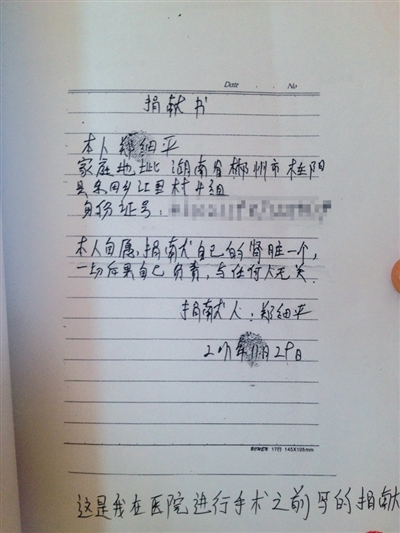 Date . . No
捐献书
本人郑细平
家庭地址:湖南省郴州市桂阳
县东回乡江里村4组
身份证号:
本人自愿,捐献自己的肾脏一个,
一切后果自己负责,与任何人无关.
捐献人:郑细平
年 月29日
17行 145X105mm
这是我在医院进行手术之前写的捐献